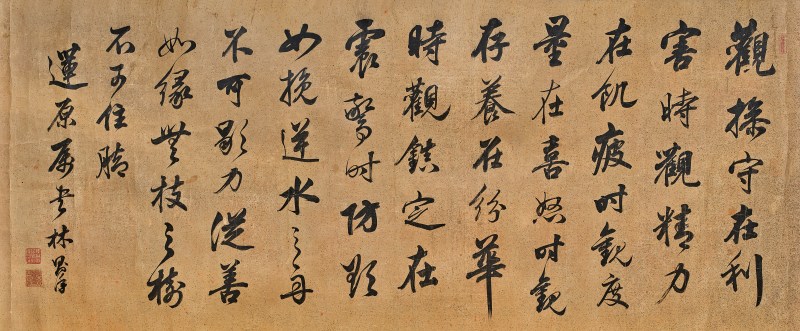 觀操守在利
害時觀精力
在飢疲時觀度
量在喜怒時觀
存養在紛華
時觀鎮定在
震驚時防欲
如挽逆水之舟
不可歇力從善
如緣無枝之樹
不可住腳
蓮原屬書林